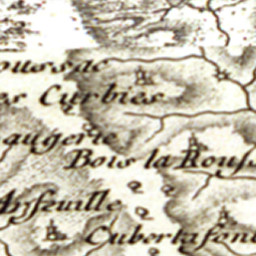 es Curbies
augerie
Bous la Rouss
Anseuille
Cubertafon